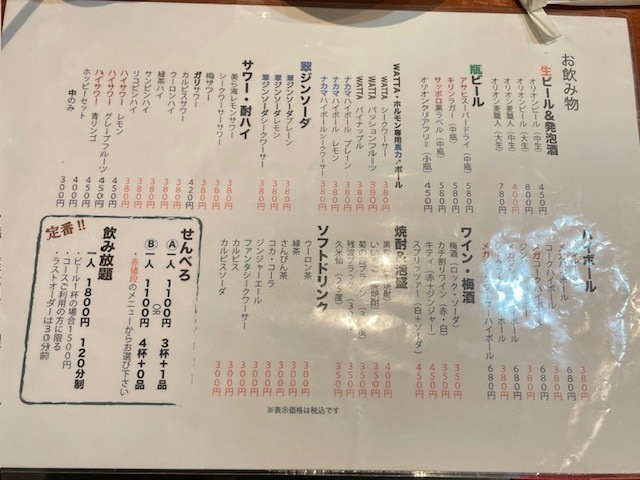 お飲み物
生ビール&発泡酒
オリオンビール(中生) 450円
オリオンビール(大生) 800円
オリオン麦職人(中生) 400円
オリオン麦職人(大生) 780円
瓶ビール
アサヒスーパードライ(中瓶) 580円
キリンラガー(中瓶) 580円
サッポロ黒ラベル(中瓶) 580円
オリオンクリアフリー(小瓶) 450円
WATTA・ホルモン専用馬力ハイボール
WATTA シークワーサー 380円
WATTA パッションフルーツ 380円
WATTA パイナップル 380円
ナカマハイボール プレーン 380円
ナカマハイボール レモン 380円
ナカマハイボールシークワーサー 380円
翠ジンソーダ
翠ジンソーダプレーン 380円
翠ジンソーダレモン 380円
翠ジンソーダシークワーサー 380円
サワー・酎ハイ
美ら海レモンサワー 380円
シークワーサーサワー 380円
梅サワー 380円
ガリサワー 420円
カルピスサワー 380円
ウーロンハイ 380円
緑茶ハイ 380円
サンピンハイ 380円
リコピンハイ 380円
ハイサワー レモン 450円
ハイサワー グレープフルーツ 450円
ハイサワー 青リンゴ 450円
ホッピーセット 400円
中のみ 300円
ハイボール
380円
680円
コーク 380円
メガコーク 680円
ジン 380円
メガ 680円
380円
メガ ハイボール 680円
ワイン・梅酒
梅酒(ロック・ソーダ) 350円
カチ割りワイン(赤・白) 350円
キティ(赤+ジンジャー) 450円
スプリッツァー(白+ソーダ) 450円
焼酎&泡盛
400円
いいちこ 350円
菊の 350円
残波 350円
久米仙 350円
ソフトドリンク
ウーロン茶 300円
緑茶 300円
さんぴん茶 300円
コカ・コーラ 300円
ジンジャーエール 300円
ファンタシークワーサー 300円
カルピス 300円
カルピスソーダ 300円
定番!!
せんべろ
Ⓐ一人 1100円 3杯+1品
OR
Ⓑ一人 1100円 4杯+0品
・赤値段のメニューからお選び下さい
飲み放題
一人 1800円 120分制
・ビール1杯の場合1500円
・コースご利用の方に限る
・ラストオーダーは30分前
※表示価格は税込です